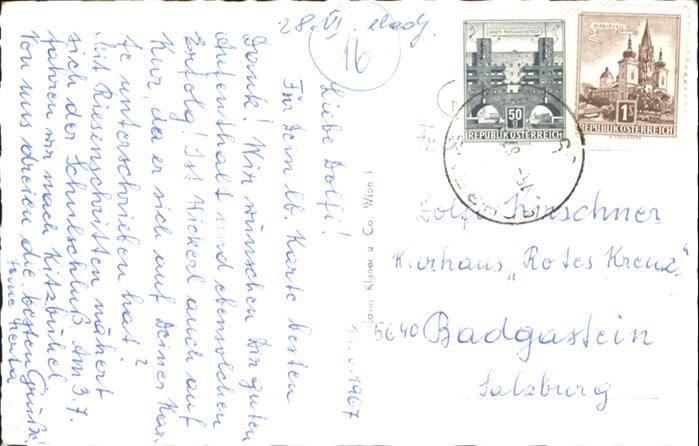 28. VI. nachg.
16
Liebe Dolfi!
Für Dein lb. Karte besten
Dank! Wir wünschen Dir guten
Aufenthalt und ebensolchen
Erfolg! Ist Nickerl auch auf
Kur, da er sich auf Deiner Kar
te unterschrieben hat?
Mit Riesenschritten nähert
sich der Schulschluß. Am 3.7.
fahren wir nach Kitzbühel
Von uns dreien die besten Grüße!
Deine Herta
11.6.1967
Josef Klaner u Co. Wien I
WIEN
50
g
REPUBLIK ÖSTERREICH
MARIAZELL
1S
REPUBLIK ÖSTERREICH
Dolfi Kirschner
Kurhaus „Rotes Kreuz"
5640 Badgastein
Salzburg